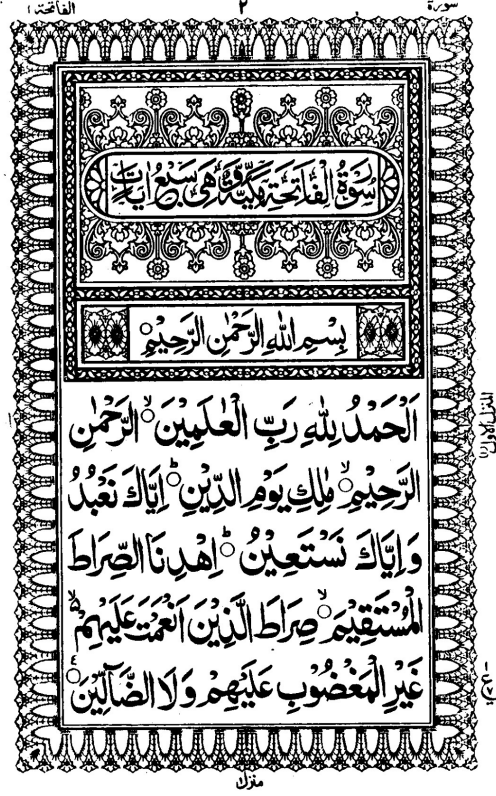 الفاتحة ١
٢
سورة
سُوْرَةُ الْفَاتِحَةِ مَكِّيَّةٌ وَّهِىَ سَبْعُ اٰيَاتٍ
بِسْمِ اللّٰهِ الرَّحْمٰنِ الرَّحِيْمِ○
اَلْحَمْدُ لِلّٰهِ رَبِّ الْعٰلَمِيْنَ○ۙ الرَّحْمٰنِ
الرَّحِيْمِ○ۙ مٰلِكِ يَوْمِ الدِّيْنِ○ؕ اِيَّاكَ نَعْبُدُ
وَاِيَّاكَ نَسْتَعِيْنُ○ؕ اِهْدِنَا الصِّرَاطَ
الْمُسْتَقِيْمَ○ۙ صِرَاطَ الَّذِيْنَ اَنْعَمْتَ عَلَيْهِمْ
غَيْرِ الْمَغْضُوْبِ عَلَيْهِمْ وَلَا الضَّآلِّيْنَ○
المنزل الاول
منزل